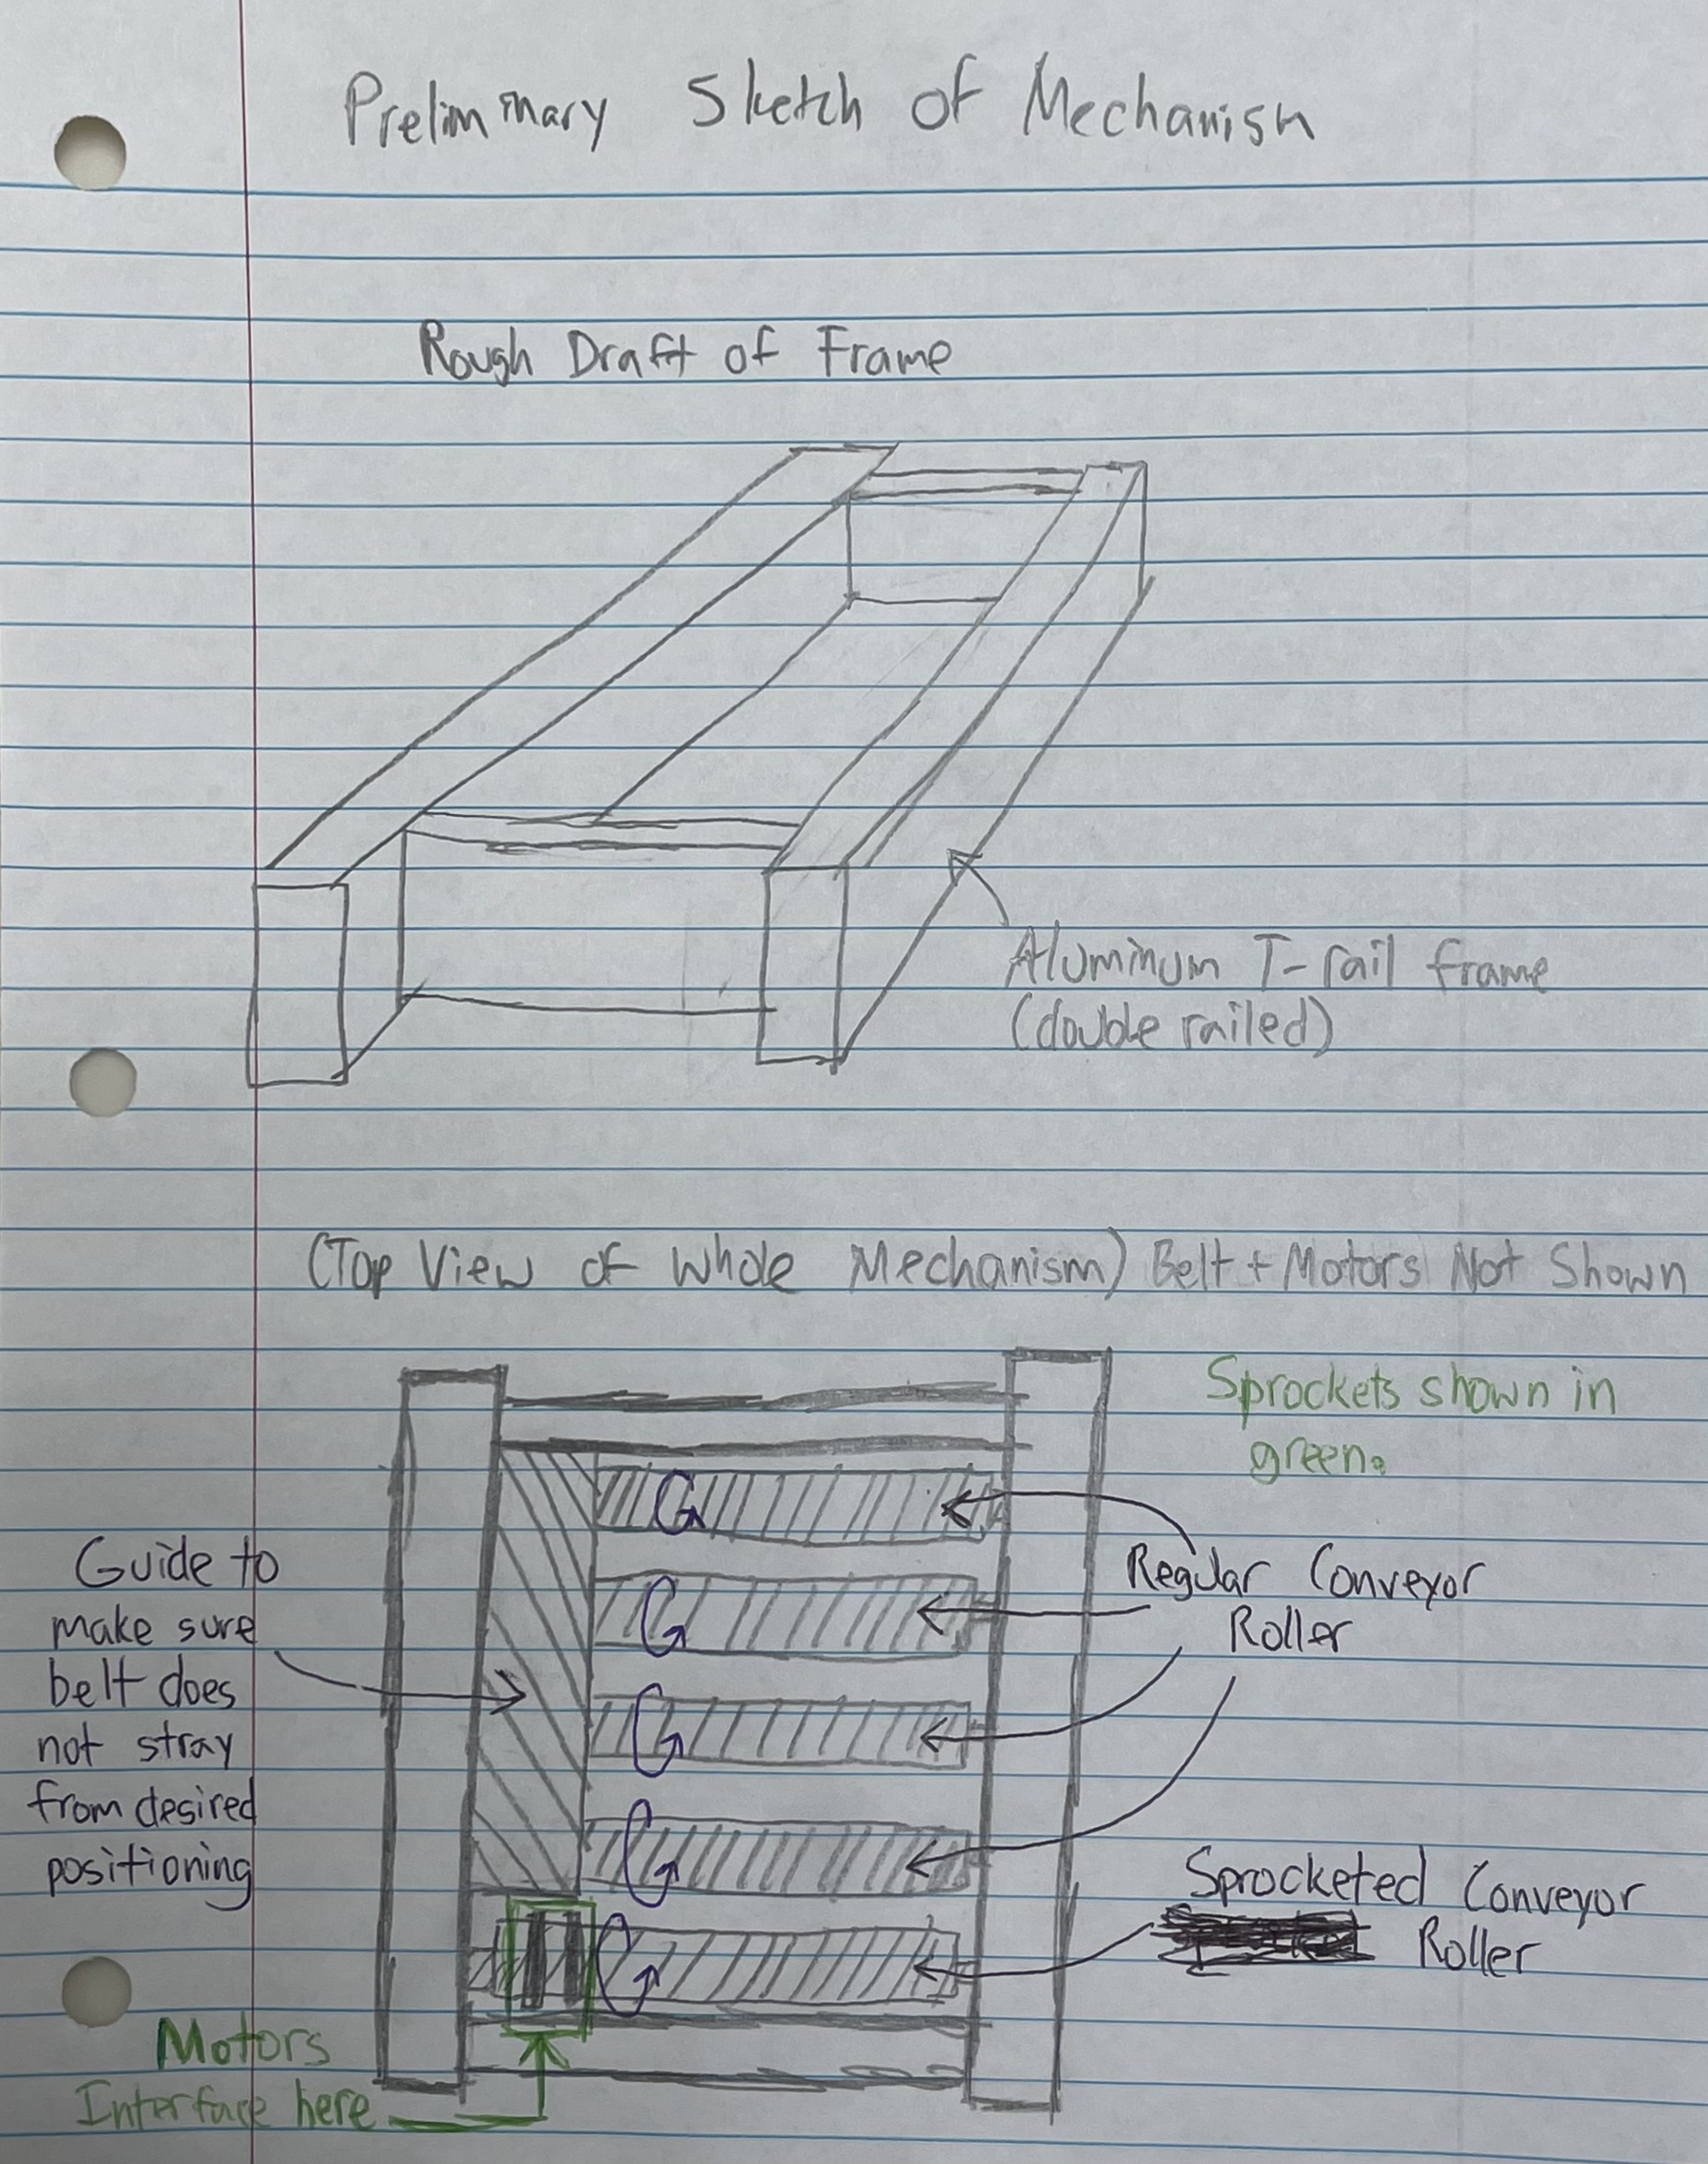 Preliminary Sketch of Mechanism
Rough Draft of Frame
Aluminum T-rail frame
(double railed)
(Top View of Whole Mechanism) Belt + Motors Not Shown
Sprockets shown in
green.
Guide to
make sure
belt does
not stray
from desired
positioning
Regular Conveyor
Roller
Sprocketed Conveyor
Roller
Motors
Interface here